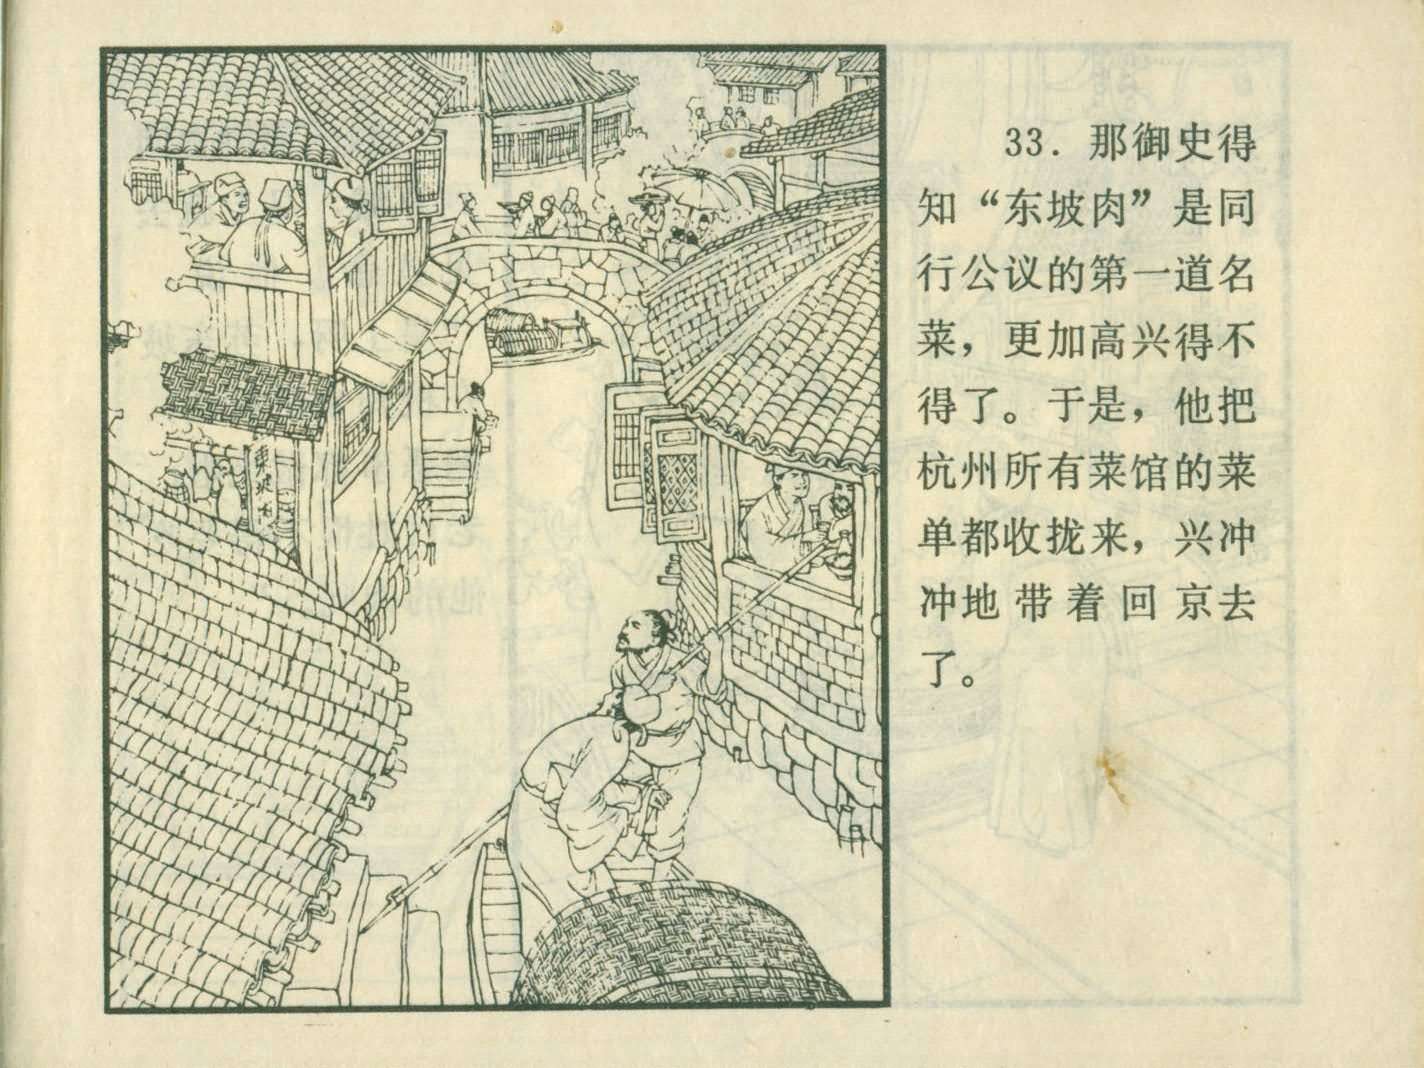 33. 那御史得
知“东坡肉”是同
行公议的第一道名
菜，更加高兴得不
得了。于是，他把
杭州所有菜馆的菜
单都收拢来，兴冲
冲地带着回京去
了。
東坡肉